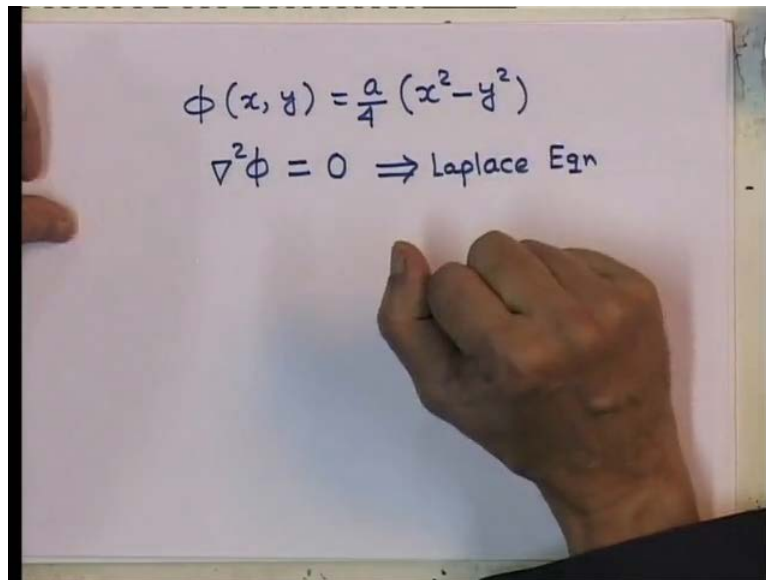 ϕ(x, y) = a/4 (x² − y²)
∇²ϕ = 0 ⇒ Laplace Eqn